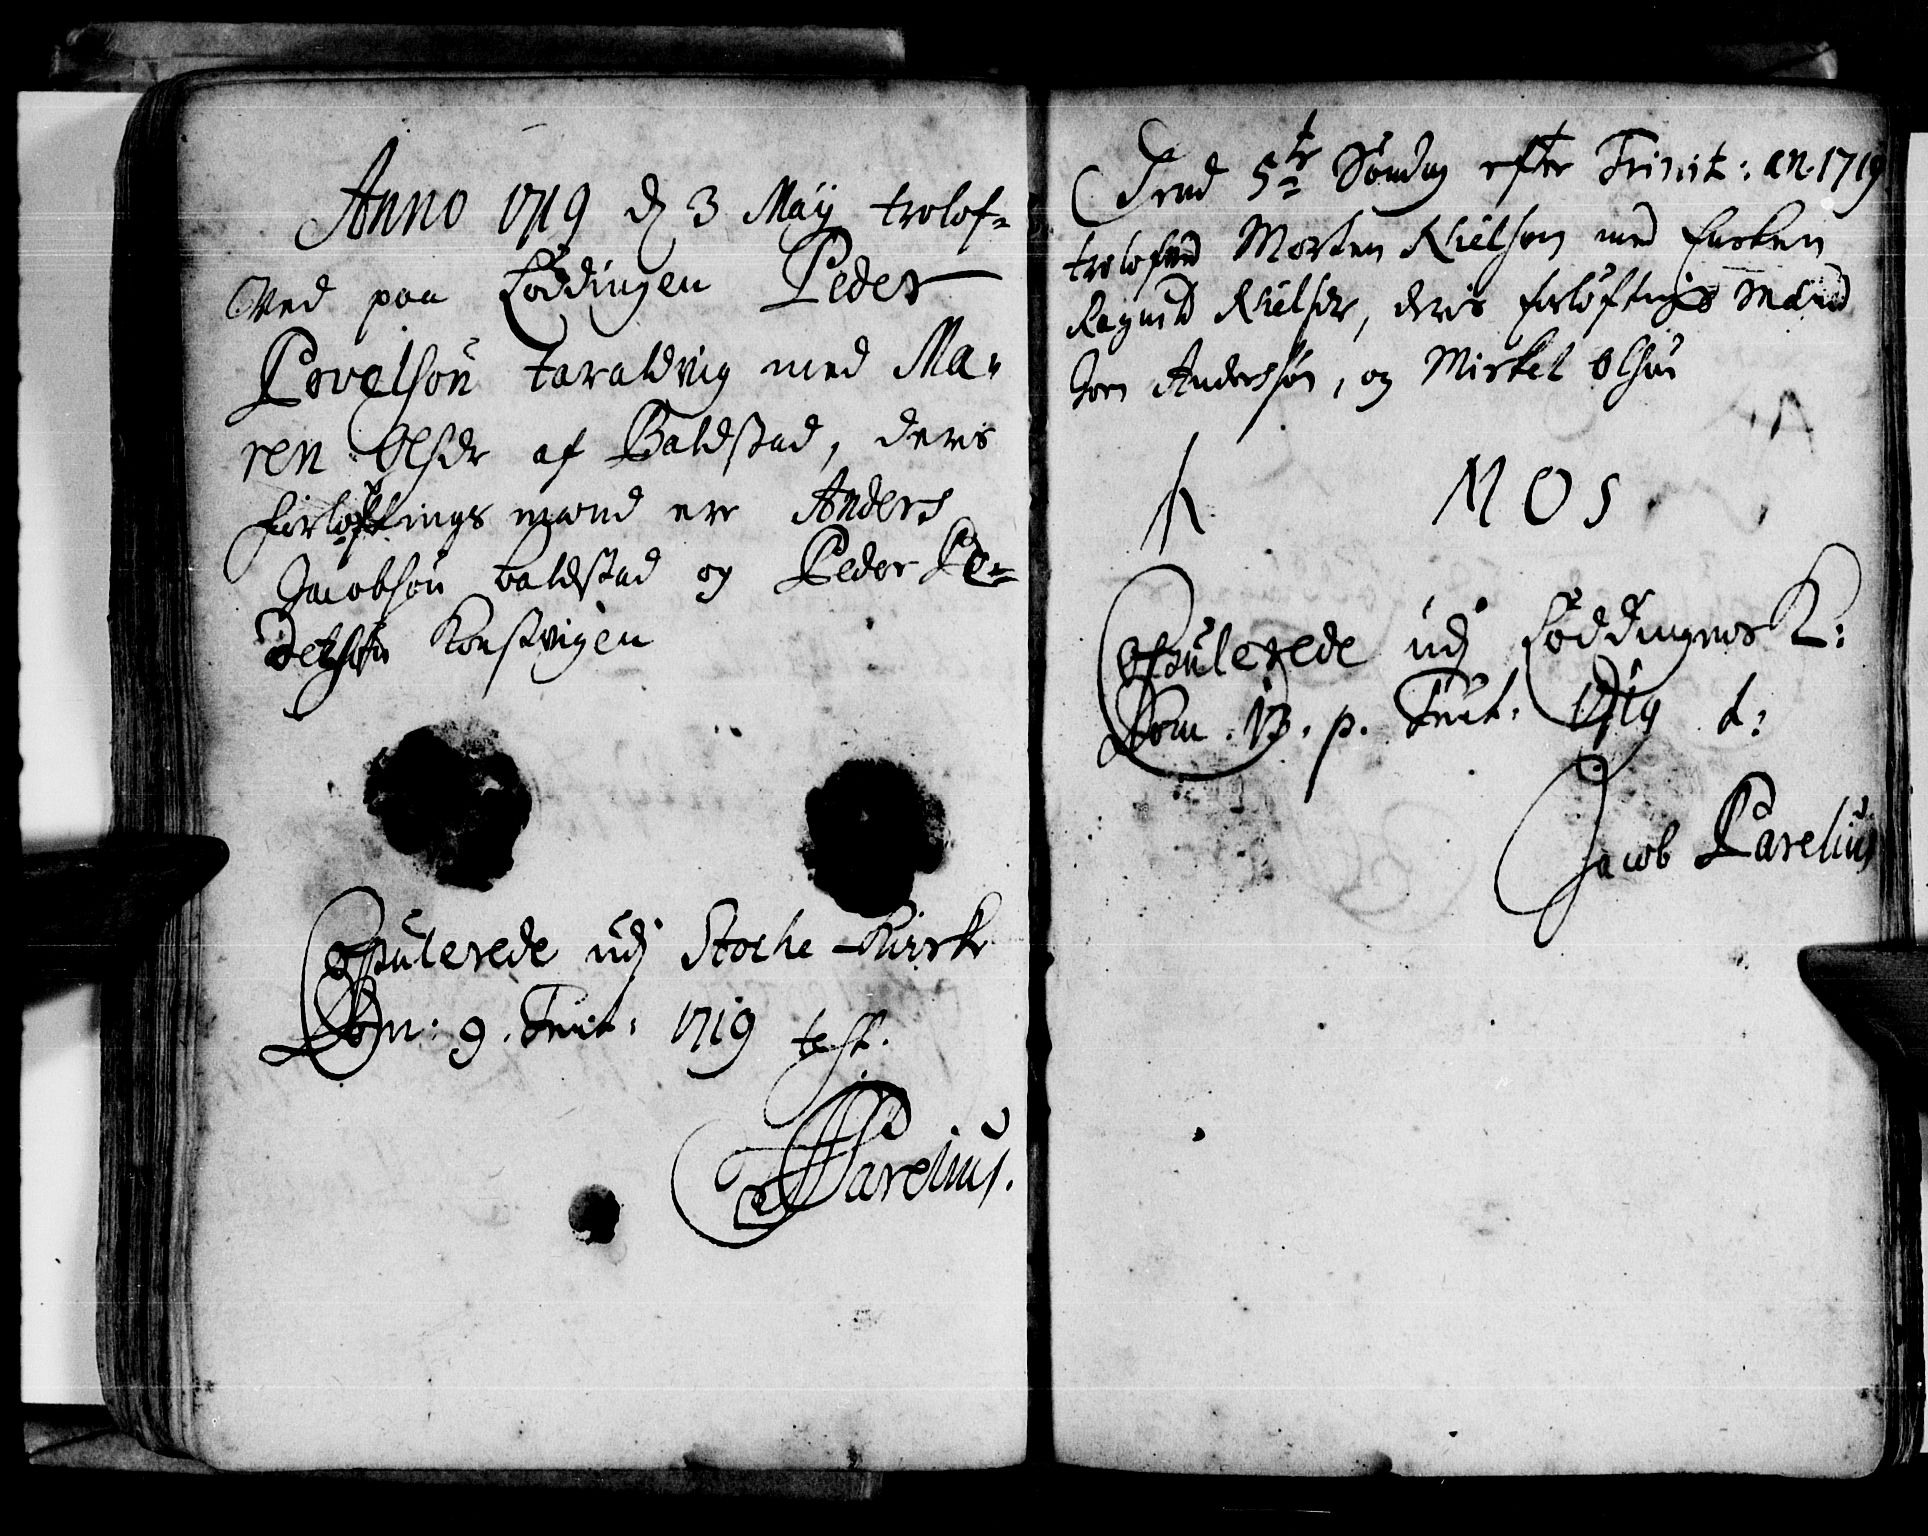 Anno 1719 d 3 Maÿ trolof-
Ved paa Løddingen Peder
Povelsøn taraldvig med Ma-
ren Olsdr af Baldstad, deris
forløftings mænd ere Anders
Jacobsøn baldstad og Peder Pe-
dersøn Konstvigen
Copulerede udj Stocke Kircke
Dom: 9. Trit: 1719 test.
JParelius.
5te Søndag efter Trinit: an. 1719
trolofved Morten Nielsøn med Encken
Ragnild Nielsdr, deris forløftnings Mænd
Jon Andersøn, og Mickel Olsøn
MOS
Copulerede udj Løddingens K:
Dom. 13. p. Trit. 1719 t:
Jacob Parelius